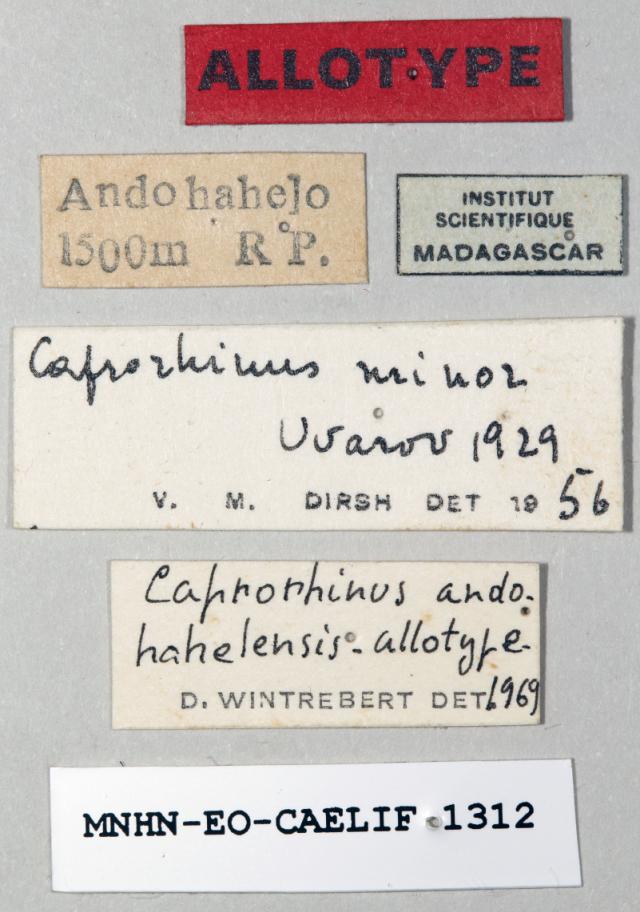 ALLOTYPE
Andohahelo
1500m R P.
INSTITUT
SCIENTIFIQUE
MADAGASCAR
Caprorhinus minor
Uvarov 1929
V. M. DIRSH DET 19 56
Caprorhinus ando-
hahelensis-allotype-
D. WINTREBERT DET. 1969
MNHN-EO-CAELIF 1312